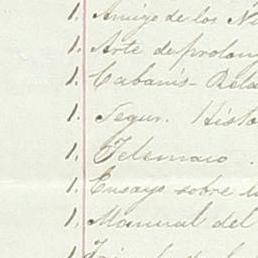 1. Amigo de los Ni
1. Arte de prolon
1. Cabanis - Rela
1. Segur. Histo
1. Telemaco.
1. Ensayo sobre
1. Manual del
1.